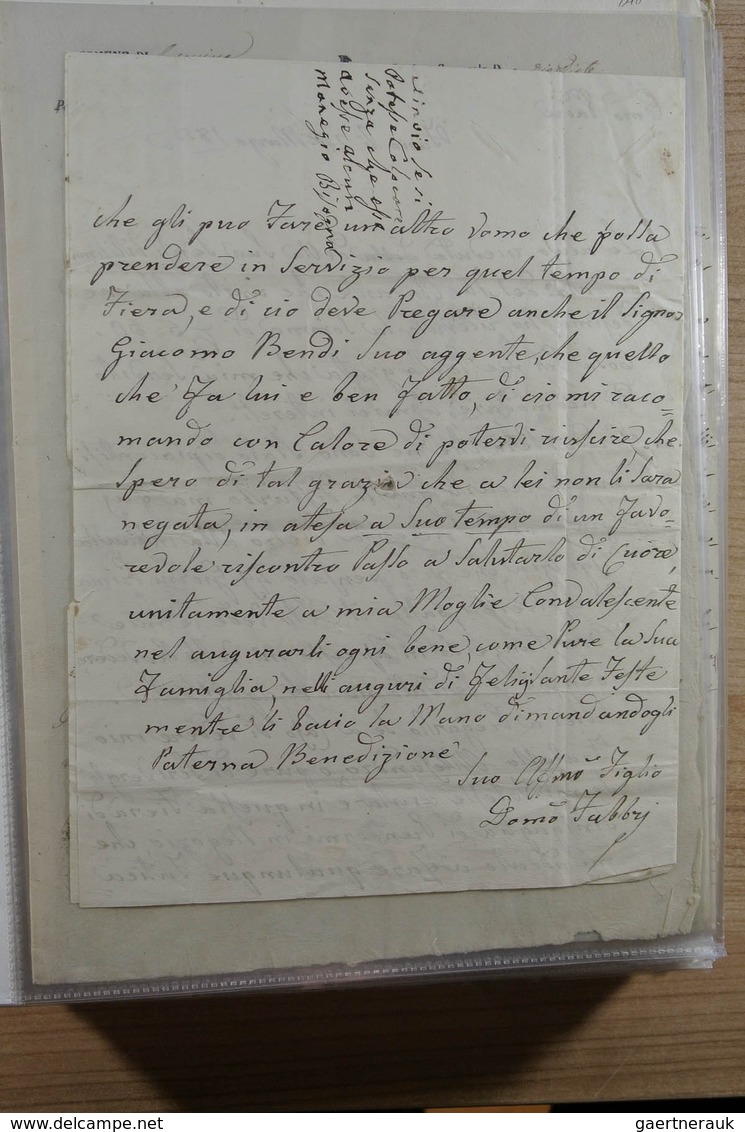 che gli puo Fare un altro Vomo che possa
prendere in Servizio per quel tempo di
Fiera, e di cio deve Pregare anche il Signor
Giacomo Bendi Suo aggente, che quello
che Fa lui e ben Fatto, di cio mi raco=
mando con Calore di poterdi riuscire, che
Spero di tal grazia che a lei non li Sara
negata, in atesa a Suo tempo di un Favo=
revole riscontro Passo a Salutarlo di Cuore,
unitamente a mia Moglie Convalescente
nel augurarli ogni bene, come Pure la Sua
Famiglia, nelli auguri di Felissante Feste
mentre li bacio la Mano dimandandogli
Paterna Benedizione
Suo Affmo Figlio
Domo Fabbri
se si
Potesse Colocar
Senza che esso
avesse alcun
Manegio Bisogna
gaertnerauk